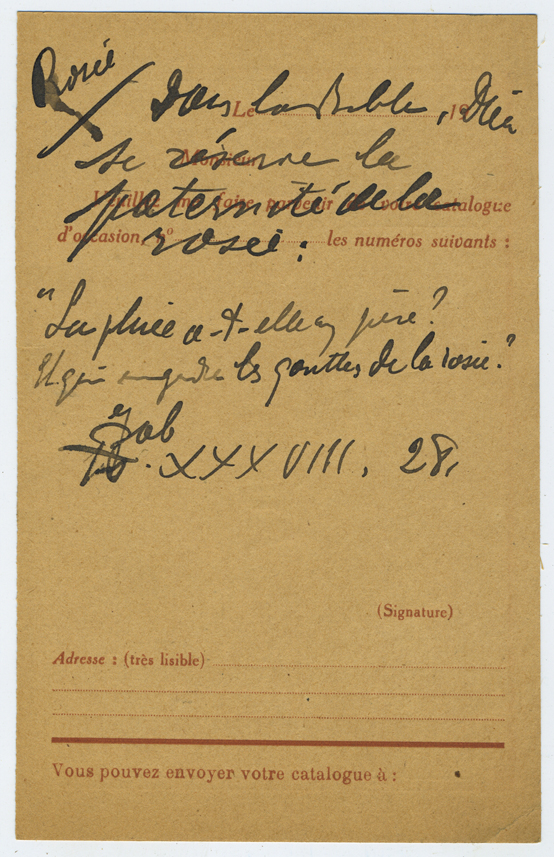 Rosée
Dans la Bible, Dieu
Le 19
se réserve la
Monsieur
paternité de la
Veuillez me faire parvenir de votre catalogue
rosée :
d'occasion, nº les numéros suivants :
"La pluie a-t-elle un père ?
Et qui engendre les gouttes de la rosée ?"
Job
XXXVIII. 28.
(Signature)
Adresse : (très lisible)
Vous pouvez envoyer votre catalogue à :